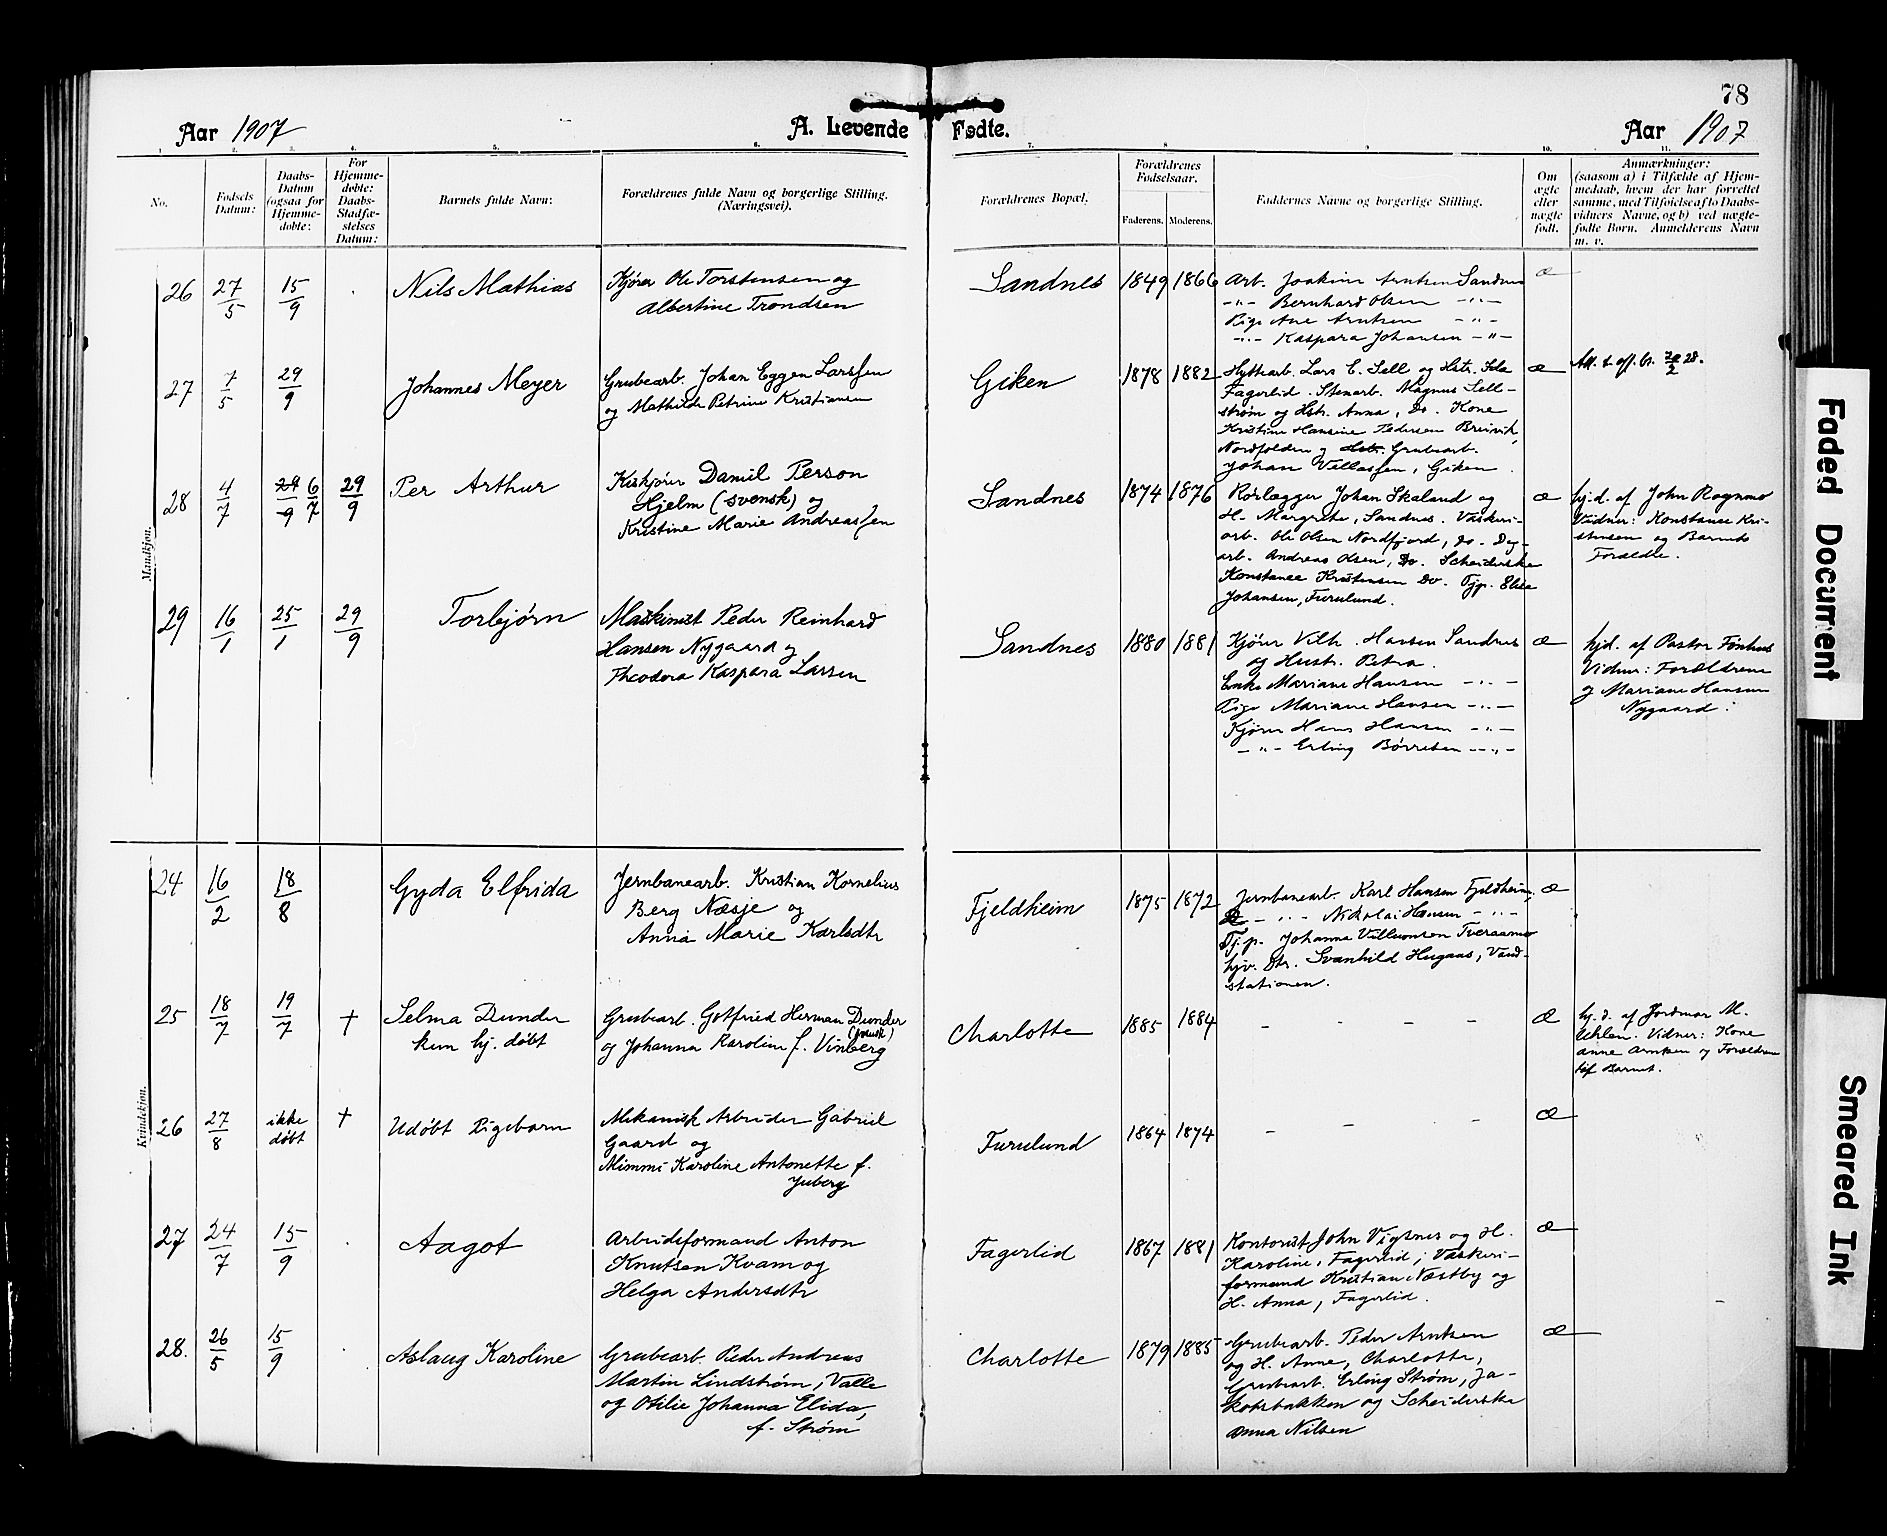 78
Aar 1907
A. Levende Fødte.
Aar 1907
1. 2. 3. 4. 5. 6. 7. 8. 9. 10. 11.
No.
Fødsels
Datum:
Daabs-
Datum
(ogsaa for
Hjemme-
døbte:
For
Hjemme-
døbte:
Daabs-
Stadfæ-
stelses
Datum:
Barnets fulde Navn:
Forældrenes fulde Navn og borgerlige Stilling.
(Næringsvei).
Forældrenes Bopæl.
Forældrenes
Fødselsaar.
Faderens. Moderens.
Faddernes Navne og borgerlige Stilling.
Om
ægte
eller
uægte
født.
Anmærkninger:
(saasom a) i Tilfælde af Hjem-
medaab, hvem der har forrettet
samme, med Tilføielse af to Daabs-
vidners Navne, og b) ved uægte-
fødte Børn. Anmelderens Navn
m. v.
Mandkjøn.
26 27/5 15/9
Nils Mathias
Kjører Ole Torstensen og
Albertine Trondsen
Sandnes
1849 1866
Arb. Joakim Arntsen Sandnes
-"- Bernhard Olsen -"-
Pige Ane Arntsen -"-
-"- Kaspara Johansen -"-
æ
27 7/5 29/9
Johannes Meyer
Grubearb. Johan Eggen Larssen
og Mathilde Petrine Kristiansen
Giken
1878 1882
Hyttearb. Lars E. Sell og Hstr. Ida
Fagerlid. Stenarb. Magnus Sell-
strøm og Hstr. Anna, Do. Kone
Kristine Hansine Pedersen Breivik,
Nordfolden og Hstr. Grubearb.
Johan Villassen, Giken.
æ
Att. t. off. br. 20/2 28.
28 4/7 29/9 6/7 29/9
Per Arthur
Kiskjører Daniel Person
Hjelm (svensk) og
Kristine Marie Andreassen
Sandnes
1874 1876
Rørlægger Johan Skaland og
H. Margrethe, Sandnes. Vaskeri-
arb. Ole Olsen Nordfjord, do. Dag-
arb. Andreas Olsen, Do. Scheiderske
Konstance Kristensen Do. Tjp. Elise
Johansen, Furulund.
æ
hj.d. af John Rognmo
Vidner: Konstance Kri-
stensen og Barnets
Forældre.
29 16/1 25/1 29/9
Torbjørn
Maskinist Peder Reinhard
Hansen Nygaard og
Theodora Kaspara Larsen
Sandnes
1880 1881
Kjører Vilh. Hansen Sandnes
og Hustr. Petra.
Enke Mariane Hansen -"-
Pige Mariane Hansen -"-
Kjører Hans Hansen -"-
-"- Erling Børresen -"-
æ
hjd. af Pastor Fonhus
Vidner: Forældrene
og Mariane Hansen
Nygaard.
Kvindekjøn.
24 16/2 18/8
Gyda Elfrida
Jernbanearb. Kristian Kornelius
Berg Næsje og
Anna Marie Karlsdtr
Fjeldheim
1875 1872
Jernbanearb. Karl Hansen Fjeldheim,
-"- Nikolai Hansen -"-
Tj.p. Johanna Villumsen Tveraamo
hjv. Dtr. Svanhild Hugaas, Vand-
stationen.
æ
25 18/7 19/7 †
Selma Dunder
kun hj. døbt
Grubearb. Gotfried Herman Dunder
(svensk)
og Johanna Karoline f. Vinberg
Charlotte
1885 1884
- - - -
æ
hj. d. af Jordmor M.
Uhlen. Vidner: Kone
Anne Arntsen og Forældrene
til Barnet.
26 27/8 ikke
døbt †
Udøbt Pigebarn
Mekanisk Arbeider Gabriel
Gaard og
Mimmi Karoline Antonette f.
Juberg
Furulund
1864 1874
- - -
æ
27 24/7 15/9
Aagot
Arbeidsformand Anton
Knutsen Kvam og
Helga Andersdtr
Fagerlid
1867 1881
Kontorist John Vigsnes og H.
Karoline, Fagerlid; Vaskeri-
formand Kristian Næstby og
H. Anna, Fagerlid.
æ
28. 26/5 15/9
Aslaug Karoline
Grubearb. Peder Andreas
Martin Lindstrøm, Valle
og Otilie Johanna Elida,
f. Strøm
Charlotte
1879 1885
Grubearb. Peder Arntsen
og H. Anne, Charlotte,
Grubearb. Erling Strøm, Ja-
kobsbakken og Scheiderske
Anna Nilsen
æ
Faded Document
Smeared Ink